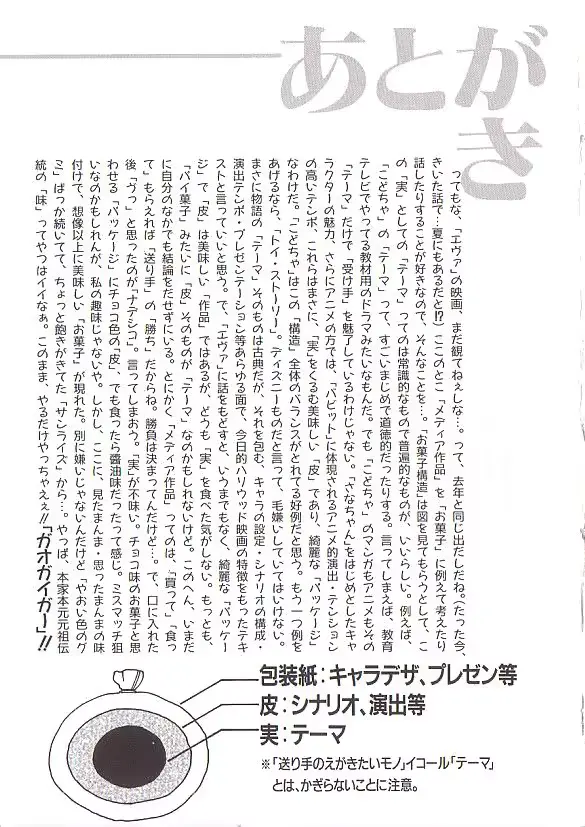 あとがき
ってもな、「エヴァ」の映画、まだ観てねぇしな…。って、去年と同じ出だしだね。(たった今、
きいた話で…夏にもあるだと!?) ここのとこ「メディア作品」を「お菓子」に例えて考えたり
話したりすることが好きなので、そんなことを…。「お菓子構造」は図を見てもらうとして、こ
の「実」としての「テーマ」ってのは常識的なもので普遍的なものが、いいらしい。例えば、
「こどちゃ」の「テーマ」って、すごいまじめで道徳的だったりする。言ってしまえば、教育
テレビでやってる教材用のドラマみたいなもんだ。でも「こどちゃ」のマンガもアニメもその
「テーマ」だけで「受け手」を魅了しているわけじゃない。「さなちゃん」をはじめとしたキャ
ラクターの魅力、さらにアニメの方では、「バビット」に体現されるアニメ的演出・テンション
の高いテンポ、これらはまさに、「実」をくるむ美味しい「皮」であり、綺麗な「パッケージ」
なわけだ。「こどちゃ」はこの「構造」全体のバランスがとれてる好例だと思う。もう一つ例を
あげるなら、「トイ・ストーリー」。ディズニーものだと言って、毛嫌いしていてはいけない。
まさに物語の「テーマ」そのものは古典だが、それを包む、キャラの設定・シナリオの構成・
演出テンポ・プレゼンテーション等あらゆる面で、今日的ハリウッド映画の特徴をもったテキ
ストと言っていいと思う。で、「エヴァ」に話をもどすと、いうまでもなく、綺麗な「パッケー
ジ」で「皮」は美味しい「作品」ではあるが、どうも「実」を食べた気がしない。もっとも、
「パイ菓子」みたいに「皮」そのものが「テーマ」なのかもしれないけど。このへん、いまだ
に自分のなかでも結論をだせずにいる。とにかく「メディア作品」ってのは、「買って」「食っ
て」もらえれば「送り手」の「勝ち」だからね。勝負は決まってんだけど…。で、口に入れた
後「ヴっ」と思ったのが「ナデシコ」。言ってしまおう。「実」が不味い。チョコ味のお菓子と思
わせる「パッケージ」にチョコ色の「皮」、でも食ったら醤油味だったって感じ。ミスマッチ狙
いなのかもしれんが、私の趣味じゃないや。しかし、ここに、見たまんま・思ったまんまの味
付けで、想像以上に美味しい「お菓子」が現れた。別に嫌いじゃないんだけど「やおい色のグ
ミ」ばっか続いてて、ちょっと飽きがきてた「サンライズ」から…。やっぱ、本家本元元祖伝
統の「味」ってやつはイイなぁ。このまま、やるだけやっちゃえぇ!!「ガオガイガー」!!
包装紙:キャラデザ、プレゼン等
皮:シナリオ、演出等
実:テーマ
※「送り手のえがきたいモノ」イコール「テーマ」
とは、かぎらないことに注意。